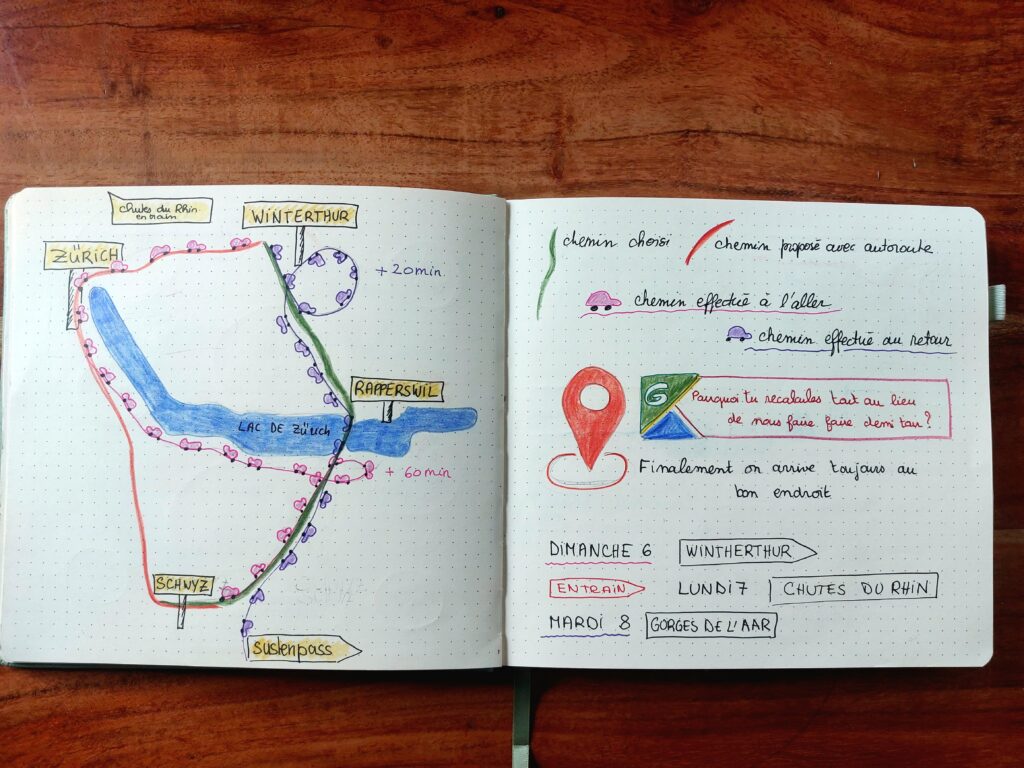 chutes du Rhin
en train
WINTERTHUR
ZÜRICH
+ 20min.
RAPPERSWIL
LAC DE Zürich
+ 60 min
SCHWYZ
Sustenpass
chemin choisi
chemin proposé avec autoroute
chemin effectué à l'aller
chemin effectué au retour
G
Pourquoi tu recalcules tout au lieu
de nous faire faire demi tour ?
Finalement on arrive toujours au
bon endroit
DIMANCHE 6 WINTHERTHUR
EN TRAIN LUNDI 7 CHUTES DU RHIN
MARDI 8 GORGES DE L'AAR